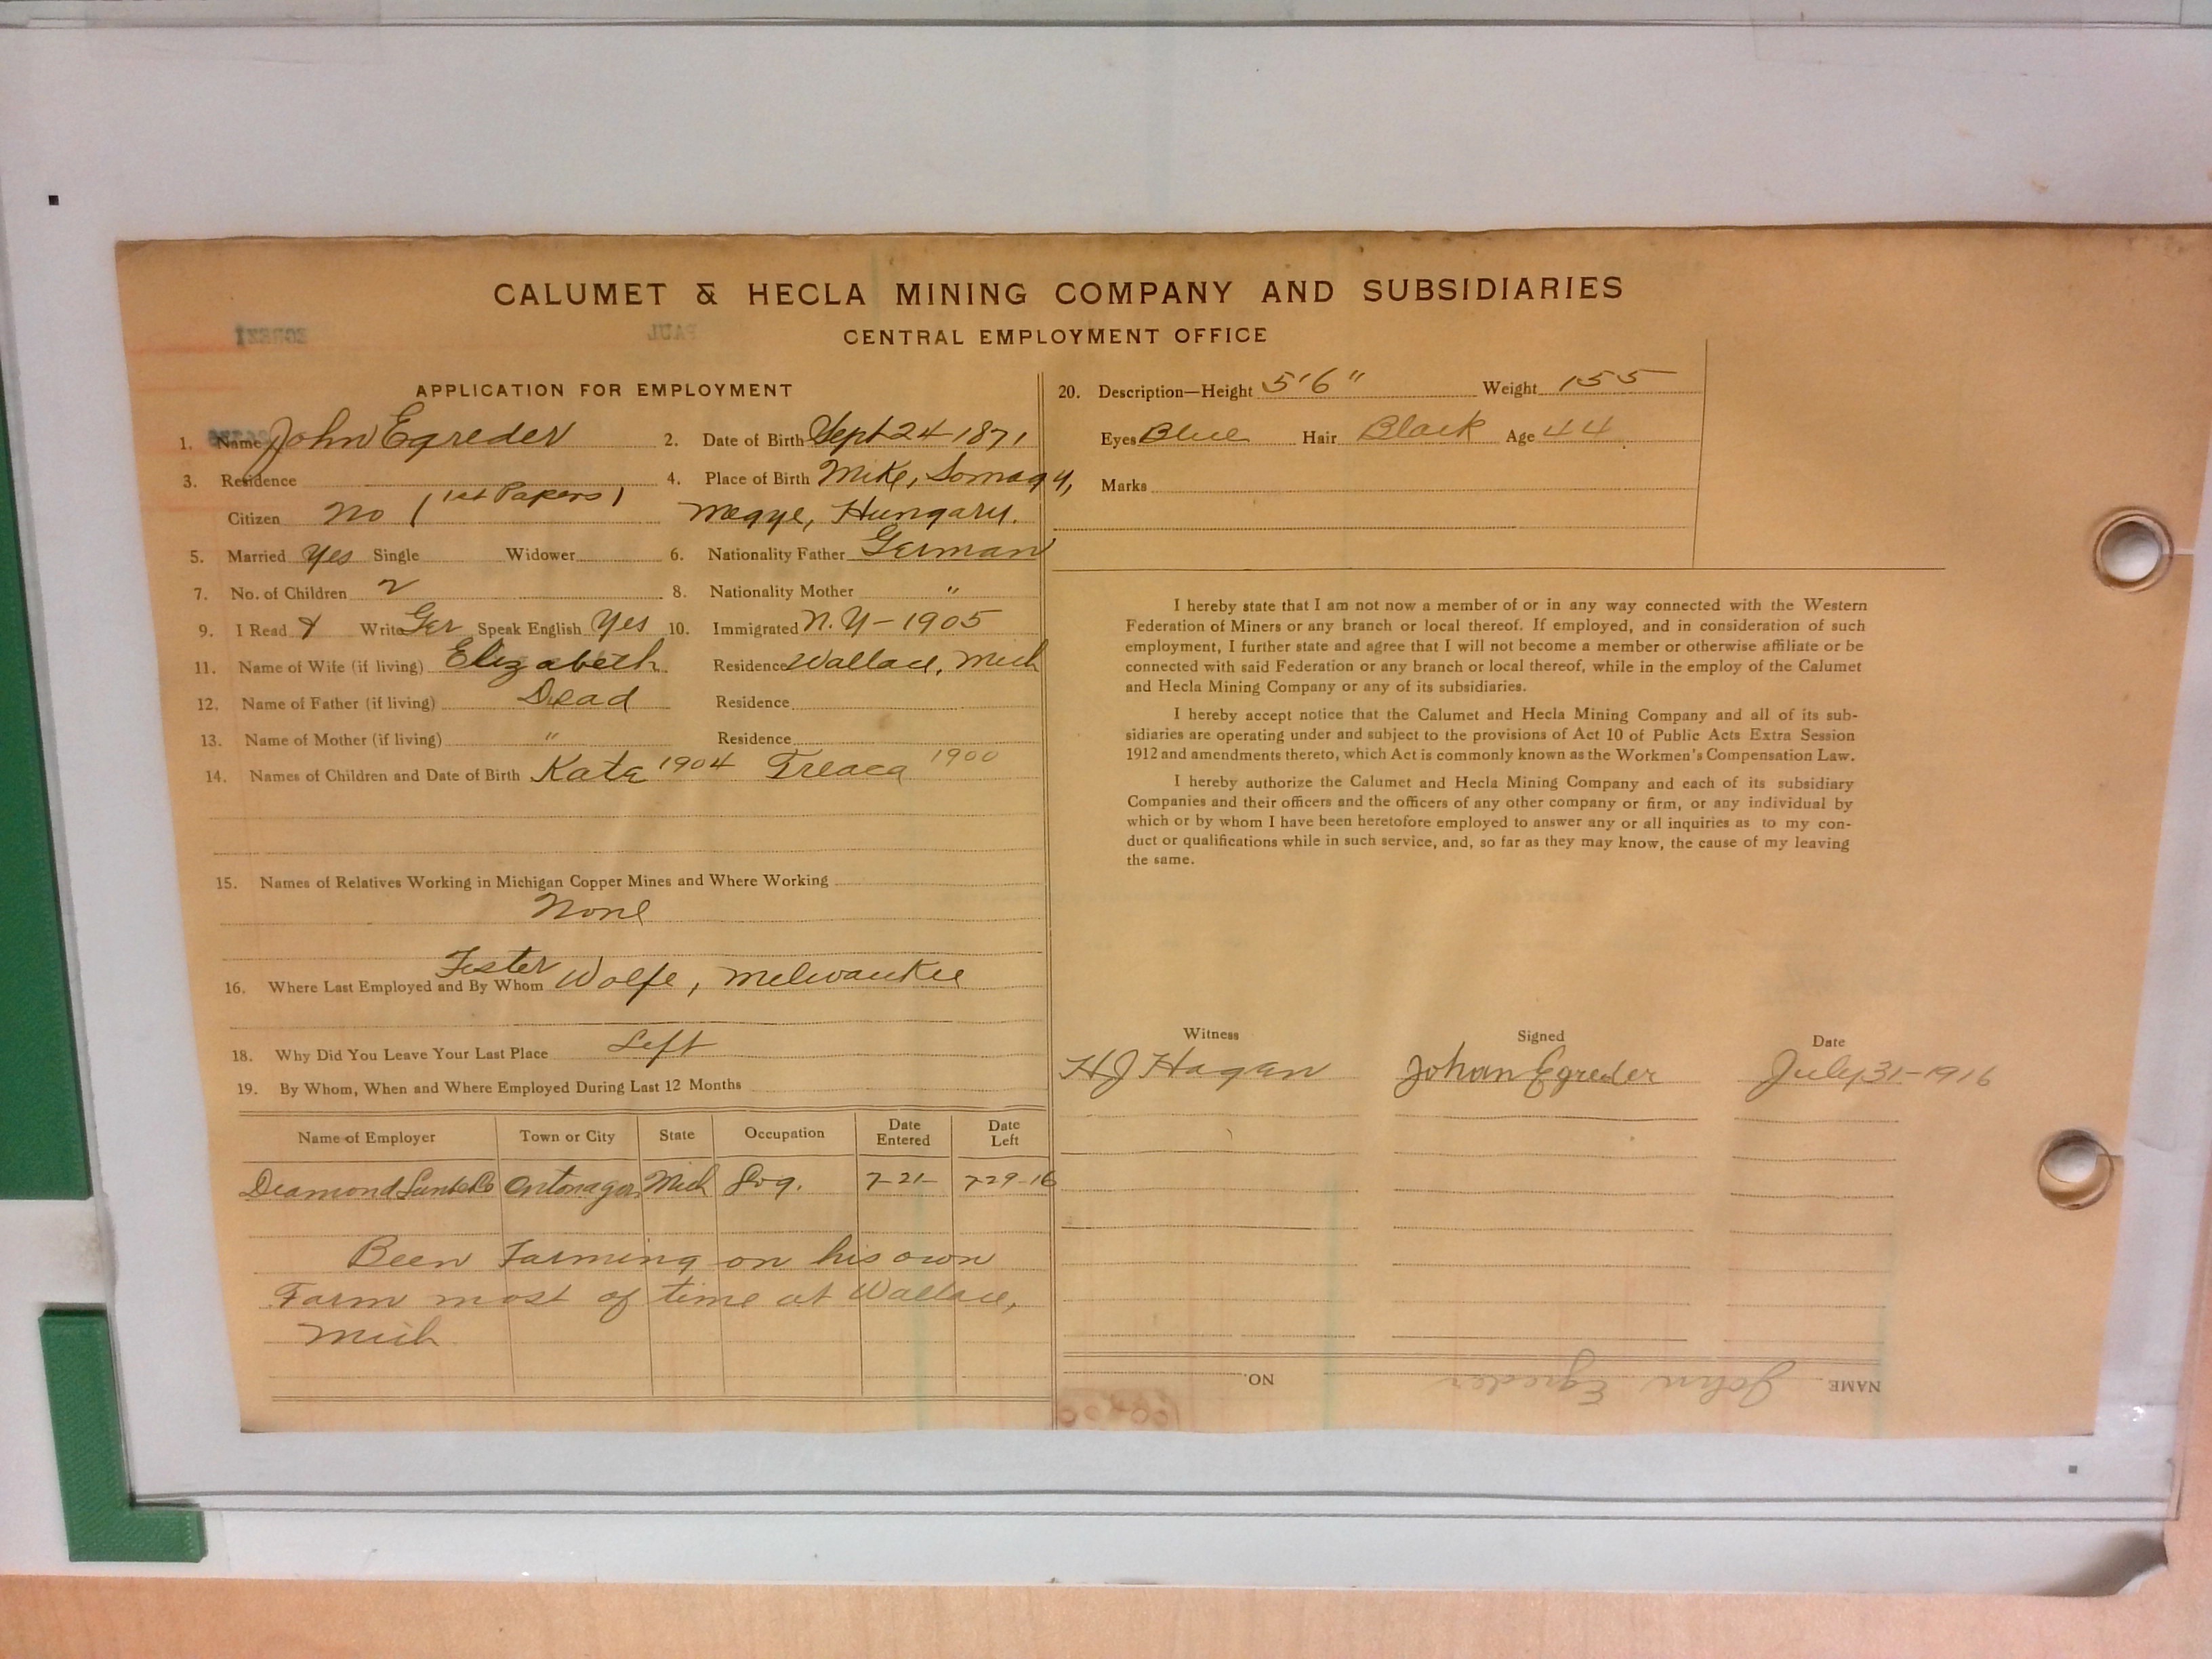 CALUMET & HECLA MINING COMPANY AND SUBSIDIARIES
CENTRAL EMPLOYMENT OFFICE
APPLICATION FOR EMPLOYMENT
1. Name John Egreder 2. Date of Birth Sept 24 1871
3. Residence 4. Place of Birth Mike, Somagy,
Citizen No (1st Papers) Megye, Hungary.
5. Married Yes Single Widower 6. Nationality Father German
7. No. of Children 2 8. Nationality Mother "
9. I Read & Write Ger Speak English Yes 10. Immigrated N.Y - 1905
11. Name of Wife (if living) Elizabeth Residence Wallace, Mich
12. Name of Father (if living) Dead Residence
13. Name of Mother (if living) " Residence
14. Names of Children and Date of Birth Kate 1904 1900
15. Names of Relatives Working in Michigan Copper Mines and Where Working
None
Fester
16. Where Last Employed and By Whom Wolfe, Melwaukee
18. Why Did You Leave Your Last Place Left
19. By Whom, When and Where Employed During Last 12 Months
Name of Employer Town or City State Occupation Date Entered Date Left
Deamond Mich Log. 7-21- 7-29-16
Been Farming on his own
Farm most of time at Wallace,
Mich
20. Description—Height 5'6" Weight 155
Eyes Blue Hair Black Age 44
Marks
I hereby state that I am not now a member of or in any way connected with the Western
Federation of Miners or any branch or local thereof. If employed, and in consideration of such
employment, I further state and agree that I will not become a member or otherwise affiliate or be
connected with said Federation or any branch or local thereof, while in the employ of the Calumet
and Hecla Mining Company or any of its subsidiaries.
I hereby accept notice that the Calumet and Hecla Mining Company and all of its sub-
sidiaries are operating under and subject to the provisions of Act 10 of Public Acts Extra Session
1912 and amendments thereto, which Act is commonly known as the Workmen's Compensation Law.
I hereby authorize the Calumet and Hecla Mining Company and each of its subsidiary
Companies and their officers and the officers of any other company or firm, or any individual by
which or by whom I have been heretofore employed to answer any or all inquiries as to my con-
duct or qualifications while in such service, and, so far as they may know, the cause of my leaving
the same.
Witness Signed Date
HJ Hagan Johan Egreder July 31-1916
NAME John Egreder NO.